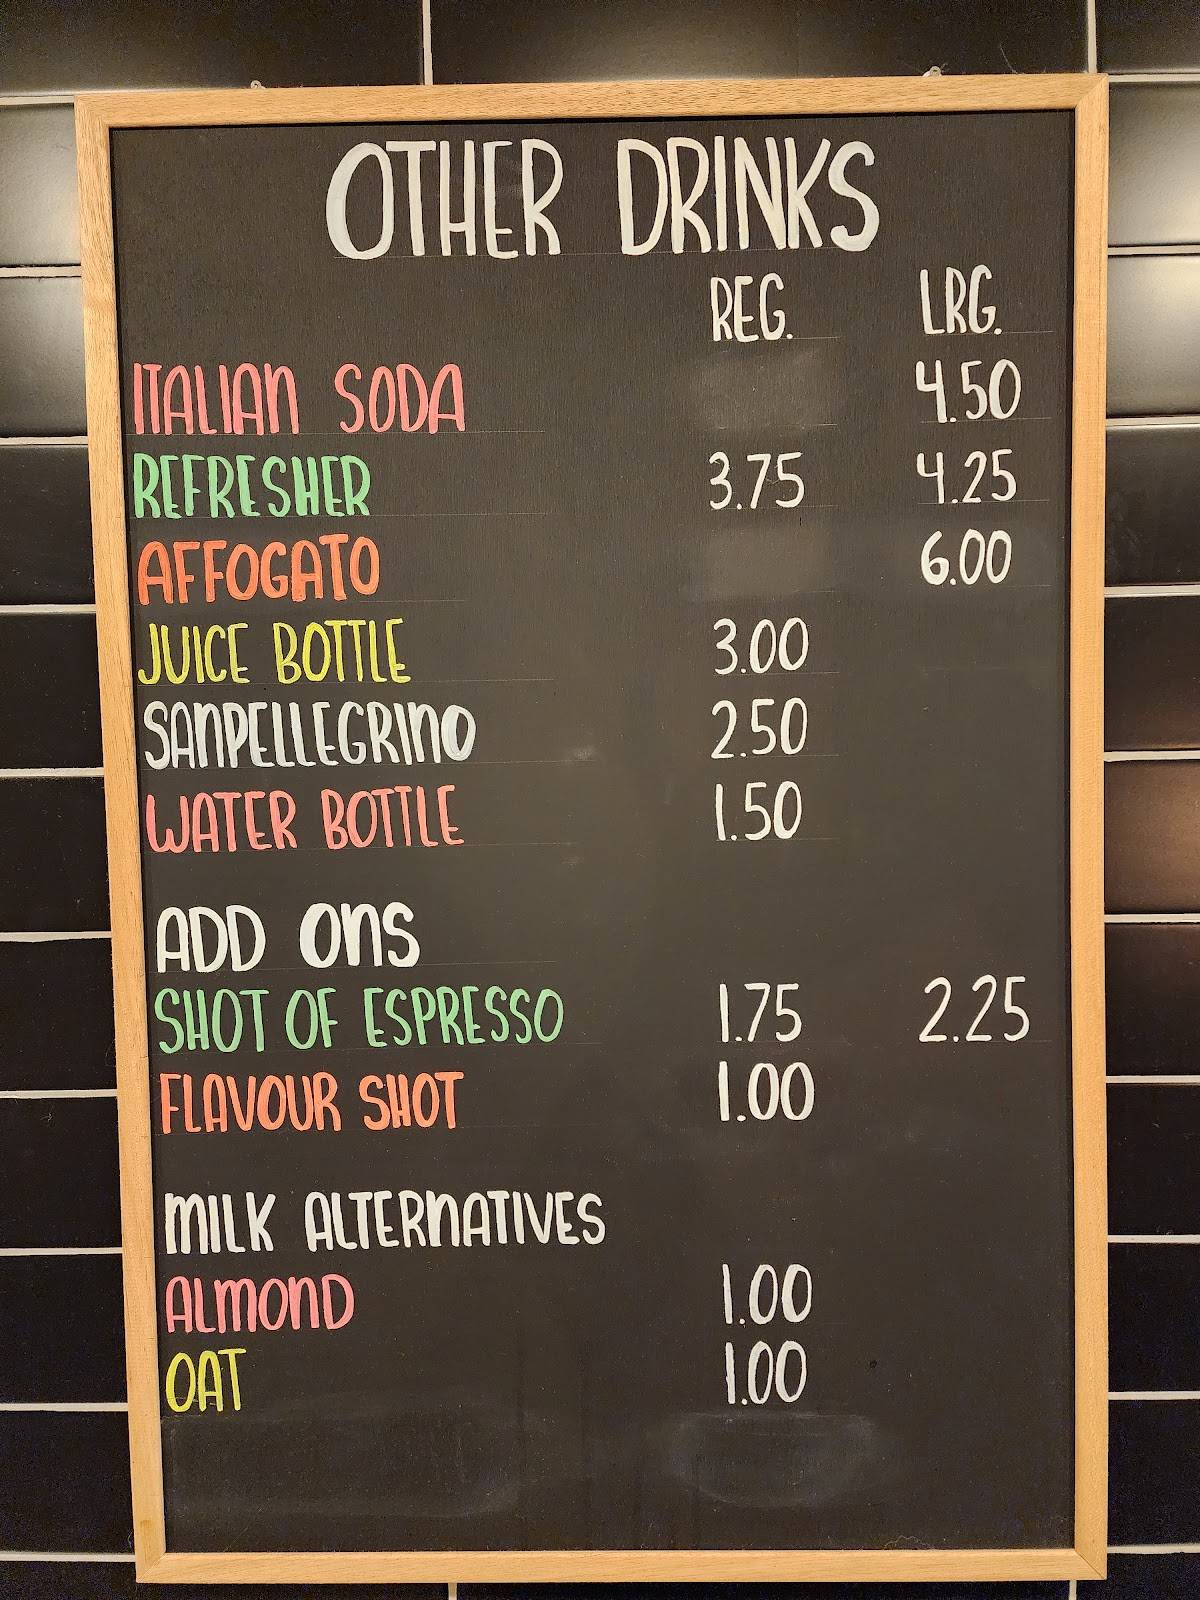 OTHER DRINKS
REG. LRG.
ITALIAN SODA 4.50
REFRESHER 3.75 4.25
AFFOGATO 6.00
JUICE BOTTLE 3.00
SANPELLEGRINO 2.50
WATER BOTTLE 1.50
ADD ONS
SHOT OF ESPRESSO 1.75 2.25
FLAVOUR SHOT 1.00
MILK ALTERNATIVES
ALMOND 1.00
OAT 1.00